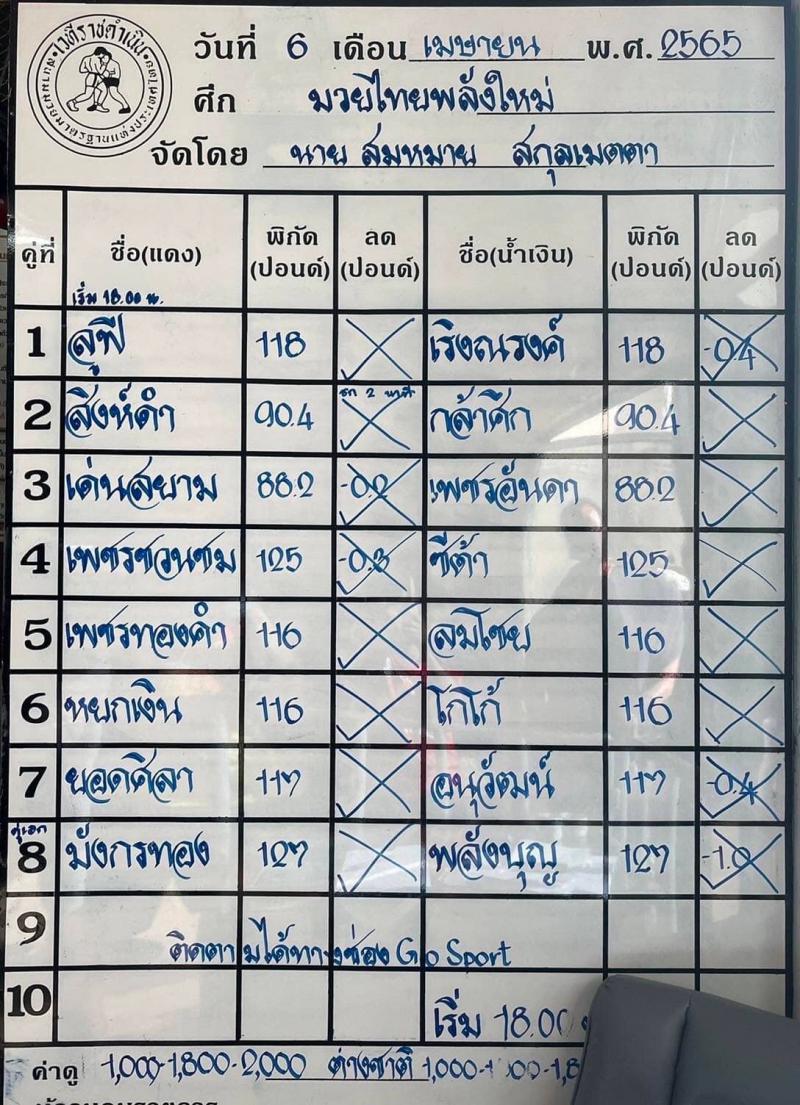 เวทีราชดำเนิน
สนามมวยมาตรฐานแห่งประเทศไทย
วันที่ 6 เดือน เมษายน พ.ศ. 2565
ศึก มวยไทยพลังใหม่
จัดโดย นาย สมหมาย สกุลเมตตา
คู่ที่ ชื่อ(แดง) พิกัด (ปอนด์) ลด (ปอนด์) ชื่อ(น้ำเงิน) พิกัด (ปอนด์) ลด (ปอนด์)
เริ่ม 18.00 น.
1 ลูฟี่ 118 เริงณรงค์ 118 -0.4
2 สิงห์ดำ 90.4 ยก 2 นาที กล้าศึก 90.4
3 เด่นสยาม 88.2 -0.2 เพชรอันดา 88.2
4 เพชรชวนชม 125 -0.3 ซีต้า 125
5 เพชรทองคำ 116 ลมโชย 116
6 หยกเงิน 116 โกโก้ 116
7 ยอดศิลา 117 อนุวัฒน์ 117 -0.4
คู่เอก
8 มังกรทอง 127 พลังบุญ 127 -1.0
9 ติดตามได้ทางช่อง Go Sport
10 เริ่ม 18.00
ค่าดู 1,000-1,800-2,000 ต่างชาติ 1,000-